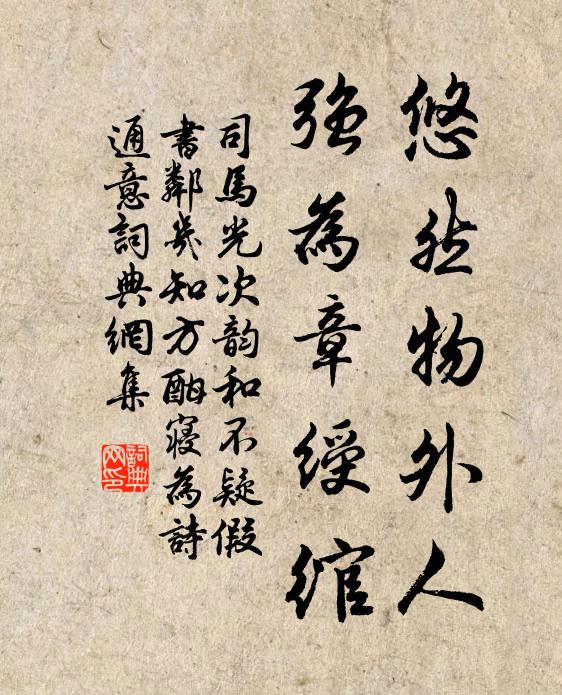 悠然物外人
強為章綬綰
司馬光次韵和不疑假
書鄰幾知方酣寝為詩
通意詞典網集
詞典网印